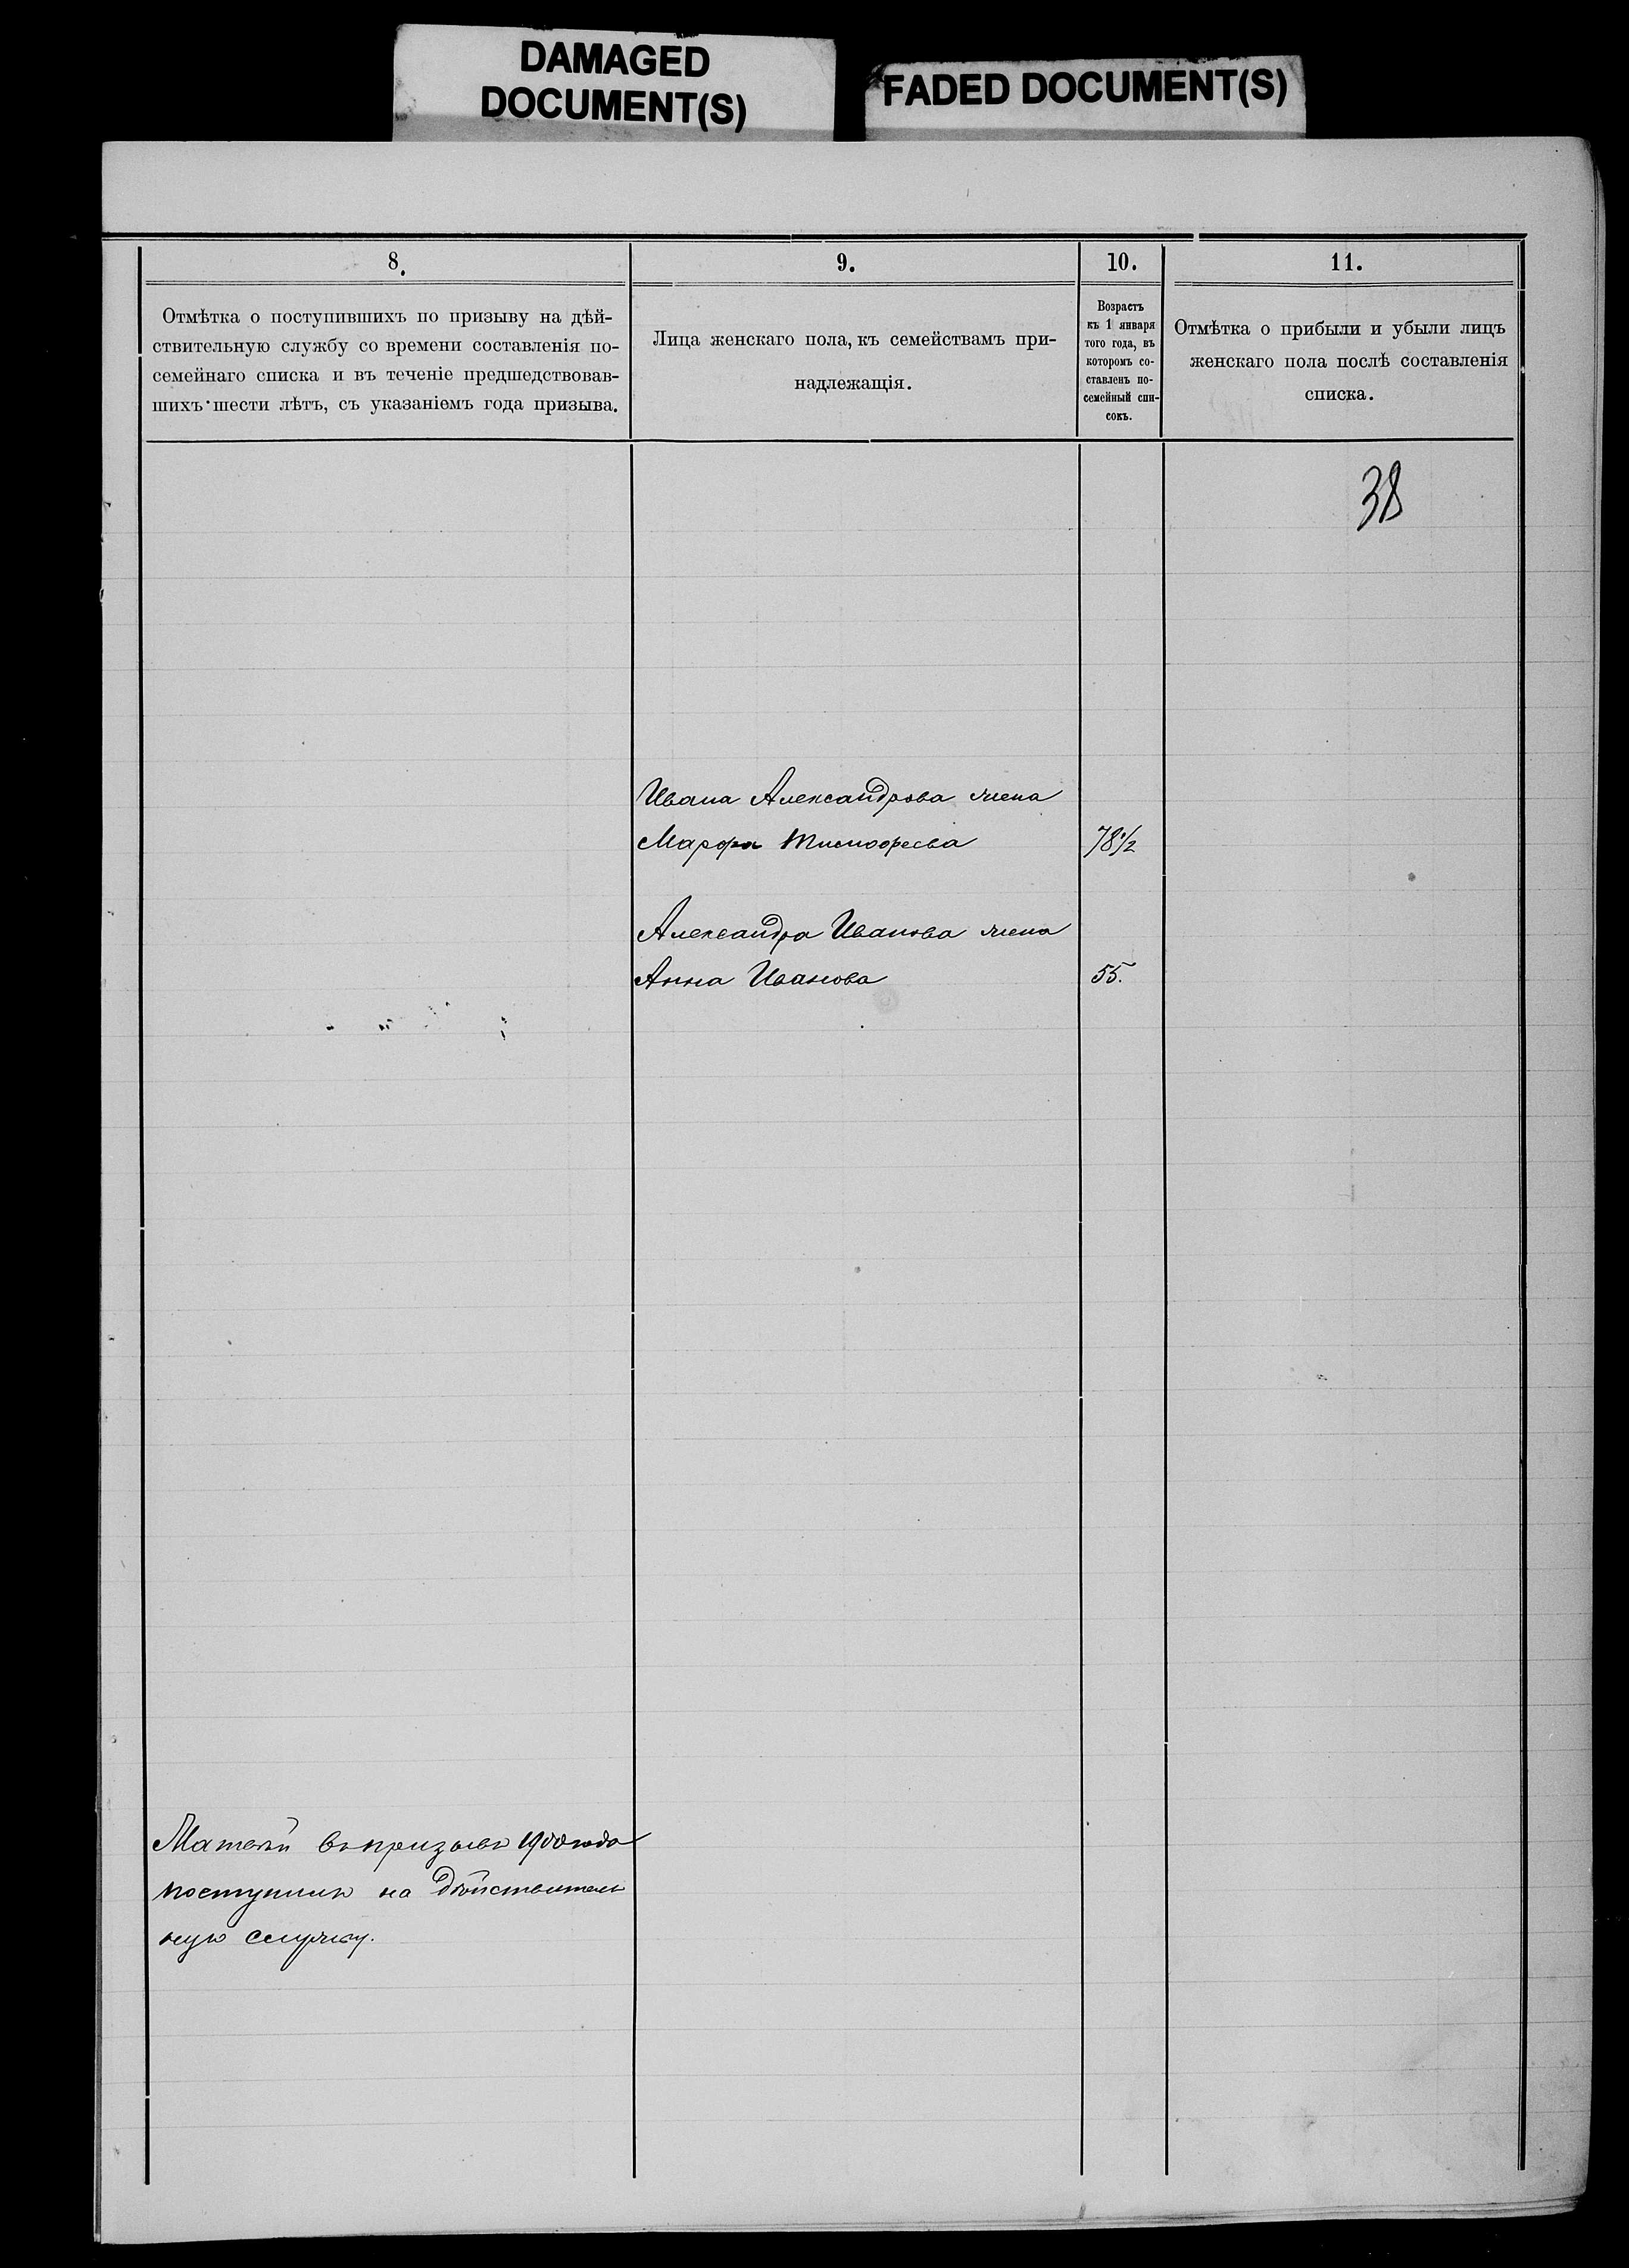 DAMAGED
DOCUMENT(S)
FADED DOCUMENT(S)
8.
Отмѣтка о поступившихъ по призыву на дѣй-
ствительную службу со времени составленія по-
семейнаго списка и въ теченіе предшедствовав-
шихъ шести лѣтъ, съ указаніемъ года призыва.
9.
Лица женскаго пола, къ семействамъ при-
надлежащія.
10.
Возрастъ
къ 1 января
того года, въ
которомъ со-
ставленъ по-
семейный спи-
сокъ.
11.
Отмѣтка о прибыли и убыли лицъ
женскаго пола послѣ составленія
списка.
38
Ивана Александрова жена
Марфа Тимофеева 78 1/2
Александра Иванова жена
Анна Иванова 55.
Матвѣй въ призывъ 1900 года
поступилъ на дѣйствитель
ную службу.